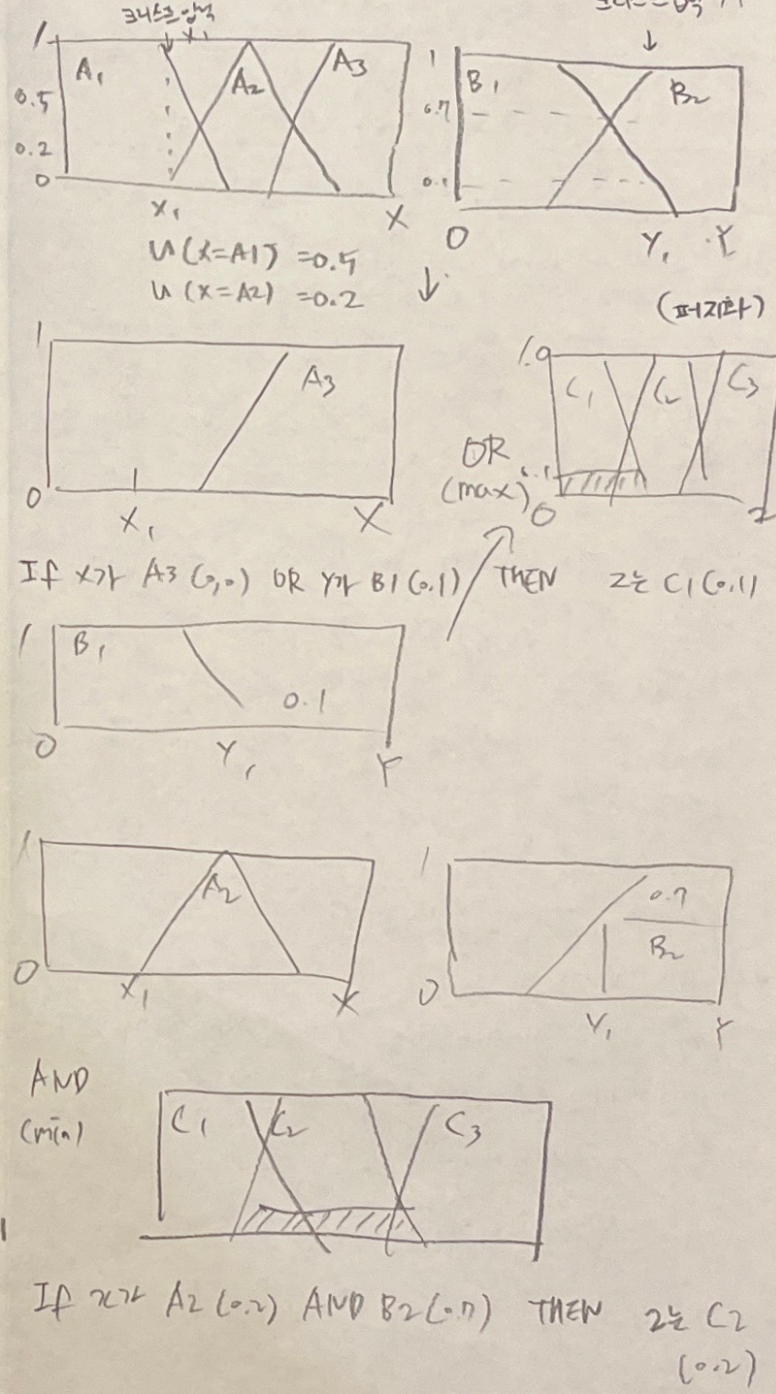 크리스프 입력
1 X₁ A₁ A₂ A₃
0.5
0.2
0
X₁ X
1 B₁ B₂
0.7
0.1
0 Y₁ Y
μ(x=A1) = 0.5
μ(x=A2) = 0.2
↓
(퍼지화)
1 A3
0 X₁ X
1.0 C₁ C₂ C₃
OR
(max) 0.1
0
If x가 A3 (0.0) OR Y가 B1 (0.1) THEN z는 C1 (0.1)
1 B₁
0.1
0 Y₁ Y
1 A₂
0 X₁ X
1 0.7
B₂
0 Y₁ Y
AND
(min)
C₁ C₂ C₃
If x가 A2 (0.2) AND B2 (0.7) THEN z는 C2
(0.2)